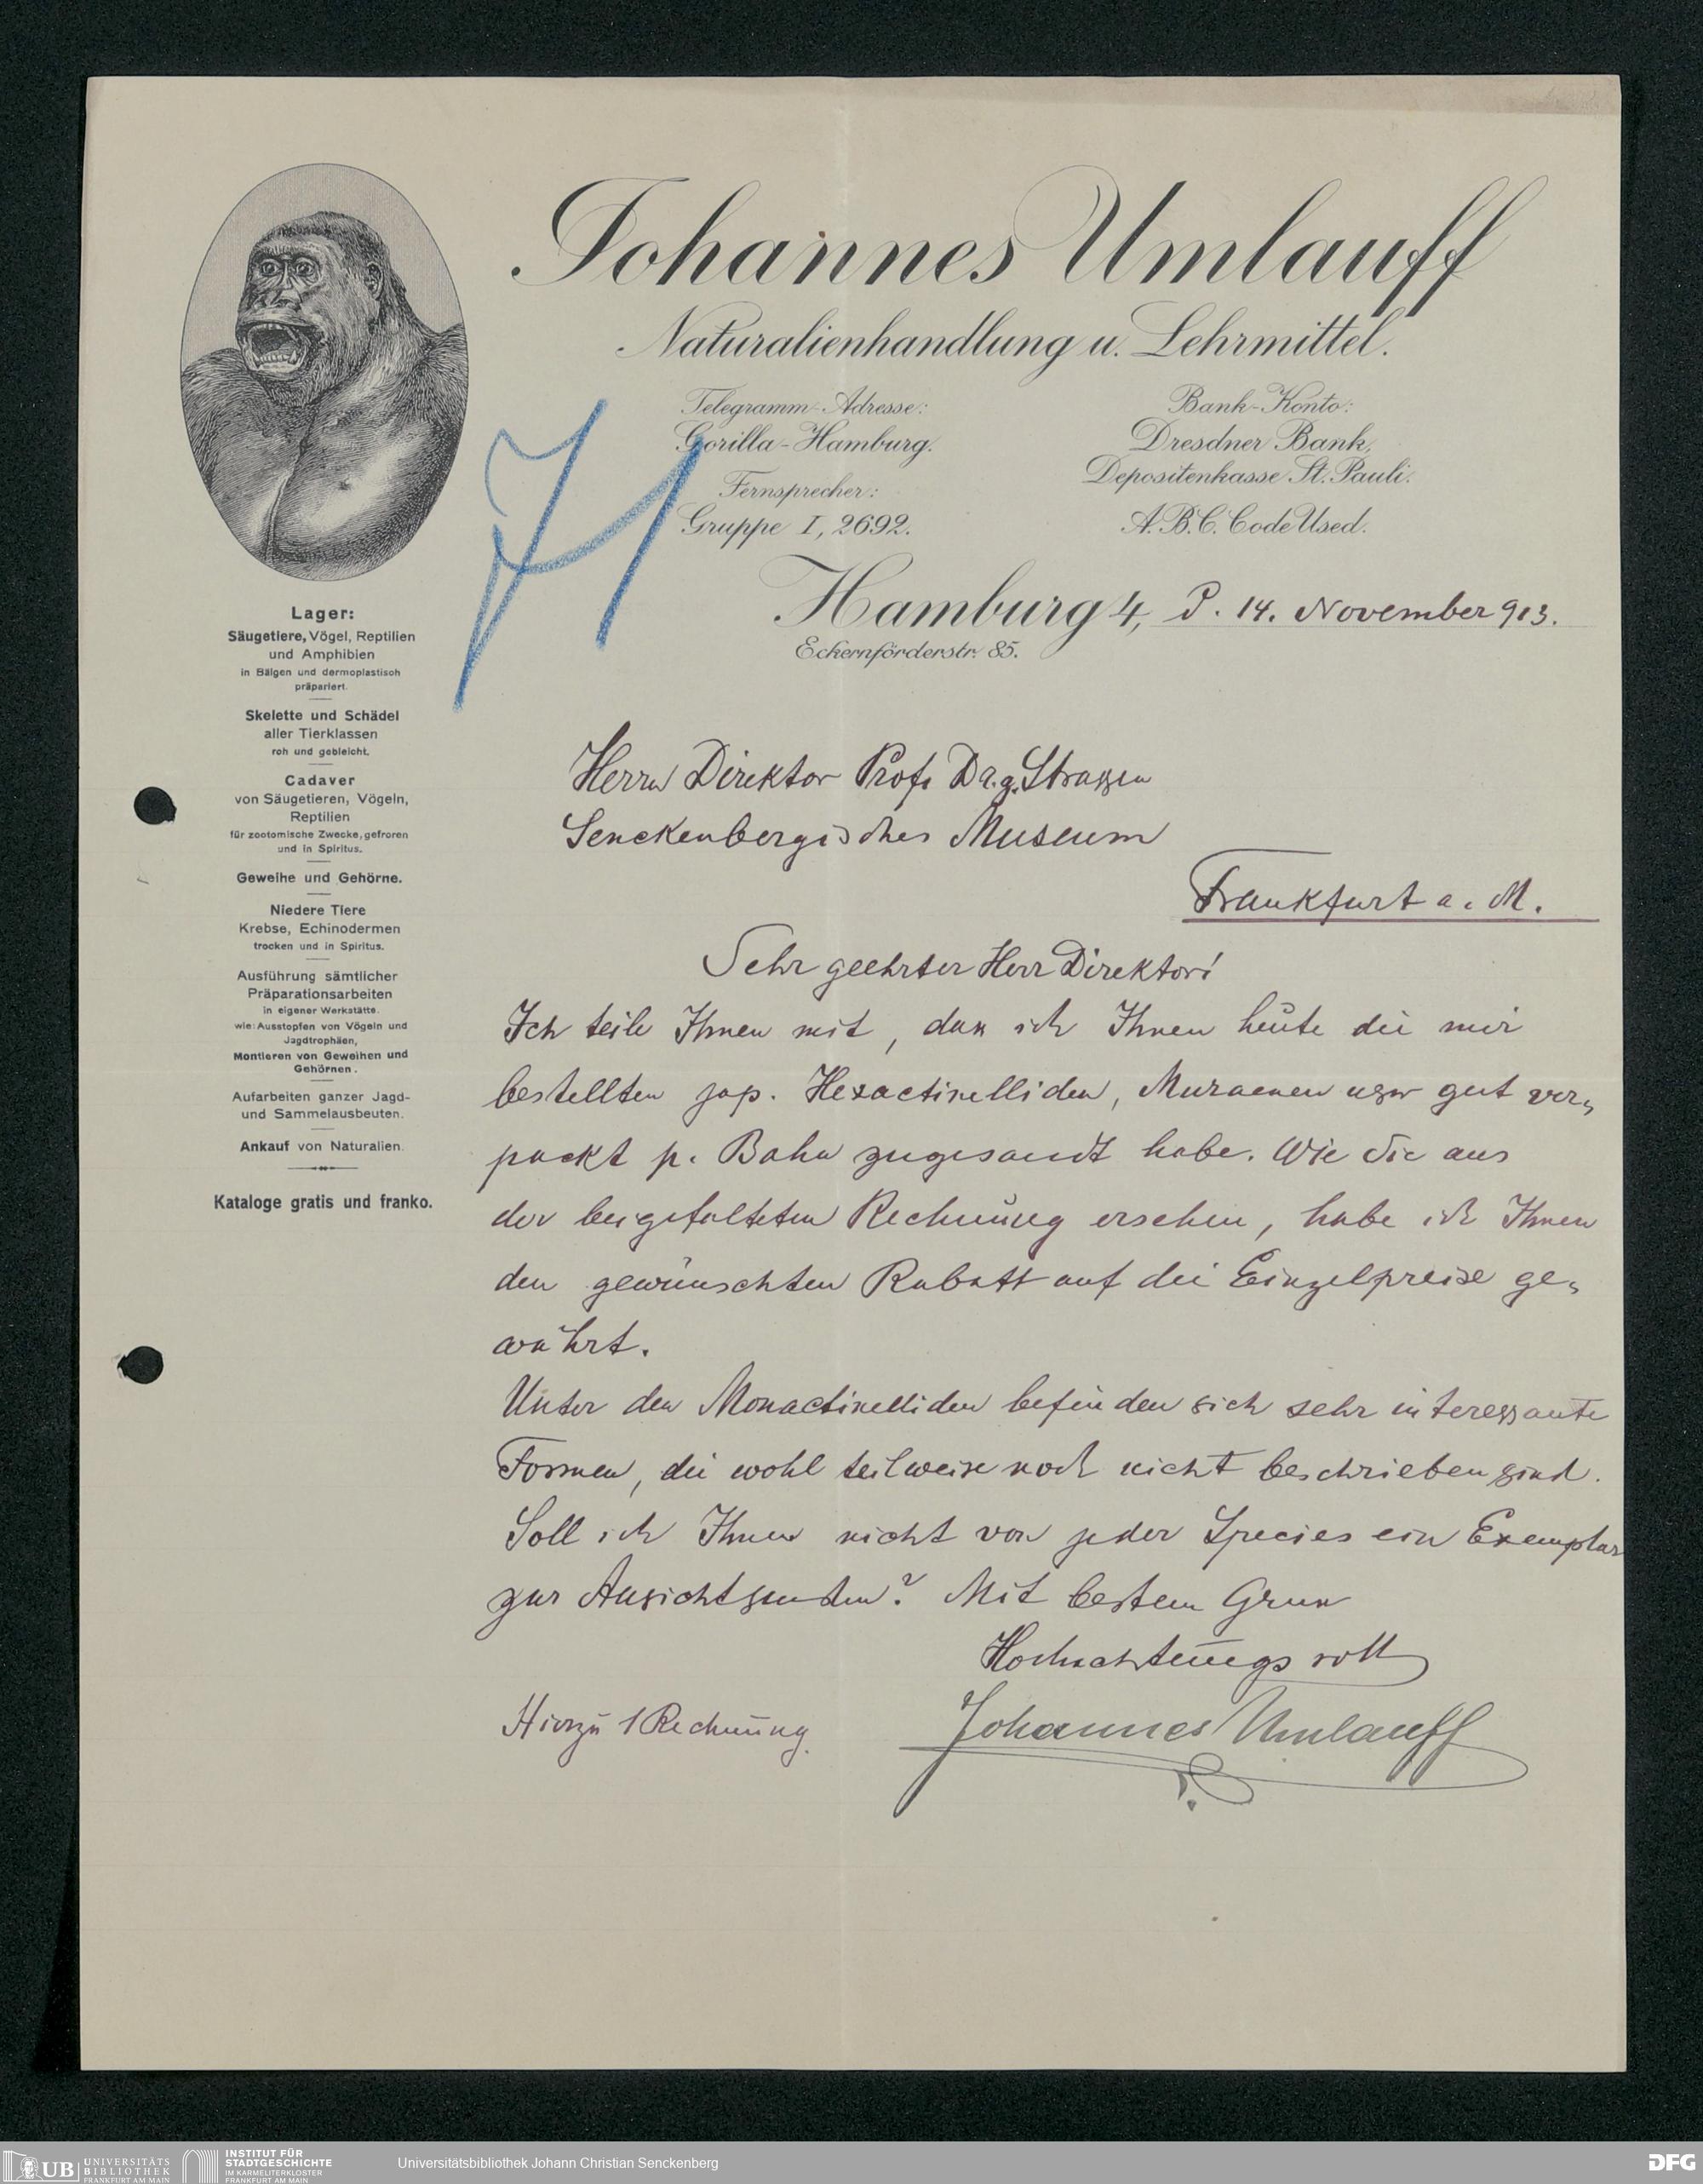 Johannes Umlauff
Naturalienhandlung u. Lehrmittel.
Telegramm-Adresse:
Gorilla-Hamburg.
Fernsprecher:
Gruppe I, 2692.
Bank-Konto:
Dresdner Bank,
Depositenkasse St. Pauli.
A.B.C. Code Used.
Hamburg 4, d. 14. November 913.
Eckernförderstr. 85.
Lager:
Säugetiere, Vögel, Reptilien
und Amphibien
in Bälgen und dermoplastisch
präpariert.
Skelette und Schädel
aller Tierklassen
roh und gebleicht.
Cadaver
von Säugetieren, Vögeln,
Reptilien
für zootomische Zwecke, gefroren
und in Spiritus.
Geweihe und Gehörne.
Niedere Tiere
Krebse, Echinodermen
trocken und in Spiritus.
Ausführung sämtlicher
Präparationsarbeiten
in eigener Werkstätte.
wie: Ausstopfen von Vögeln und
Jagdtrophäen,
Montieren von Geweihen und
Gehörnen.
Aufarbeiten ganzer Jagd-
und Sammelausbeuten.
Ankauf von Naturalien.
Kataloge gratis und franko.
Herrn Direktor Prof. Dr. z. Strassen
Senckenbergisches Museum
Frankfurt a. M.
Sehr geehrter Herr Direktor!
Ich teile Ihnen mit, dass ich Ihnen heute die mir
bestellten jap. Hexactinelliden, Muraenen usw gut ver-
packt p. Bahn zugesandt habe. Wie Sie aus
der beigefalteten Rechnung ersehen, habe ich Ihnen
den gewünschten Rabatt auf die Einzelpreise ge-
währt.
Unter den Monactinelliden befinden sich sehr interessante
Formen, die wohl teilweise noch nicht beschrieben sind.
Soll ich Ihnen nicht von jeder Species ein Exemplar
zur Ansicht senden? Mit bestem Gruss
Hochachtungsvoll
Hierzu 1 Rechnung.
Johannes Umlauff
UB UNIVERSITÄTS
BIBLIOTHEK
FRANKFURT AM MAIN
INSTITUT FÜR
STADTGESCHICHTE
IM KARMELITERKLOSTER
FRANKFURT AM MAIN
Universitätsbibliothek Johann Christian Senckenberg
DFG